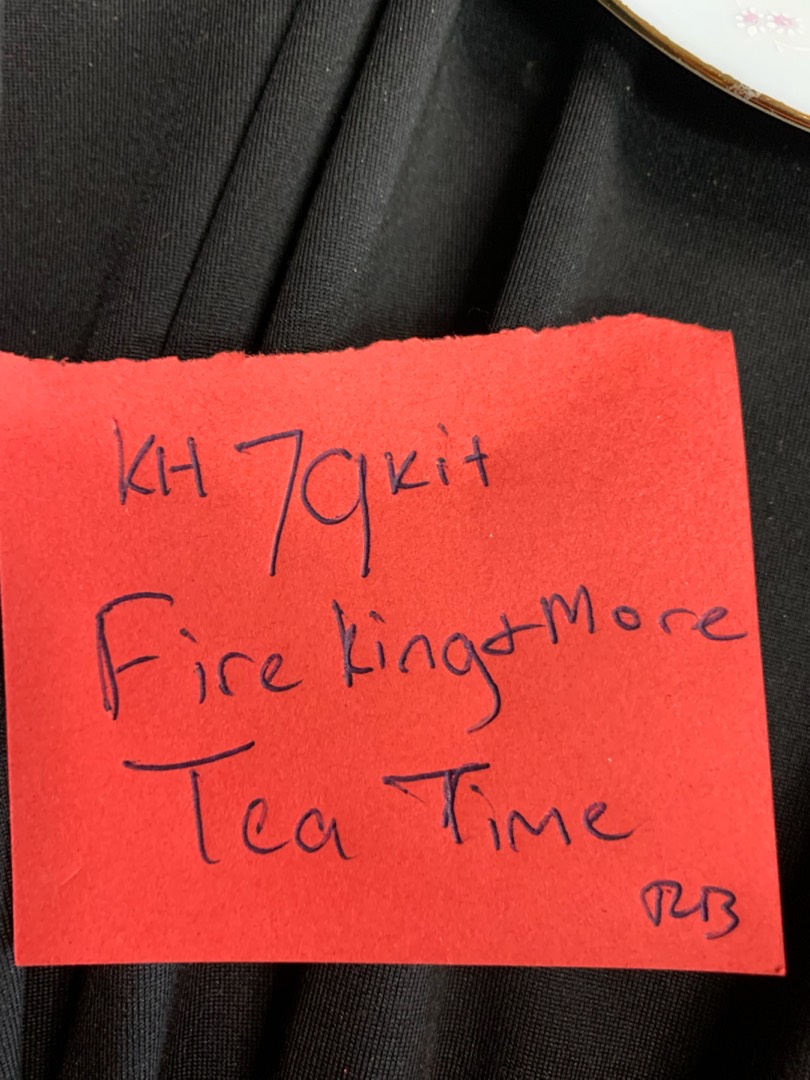 KH 79 Kit
Fire King & More
Tea Time
RB